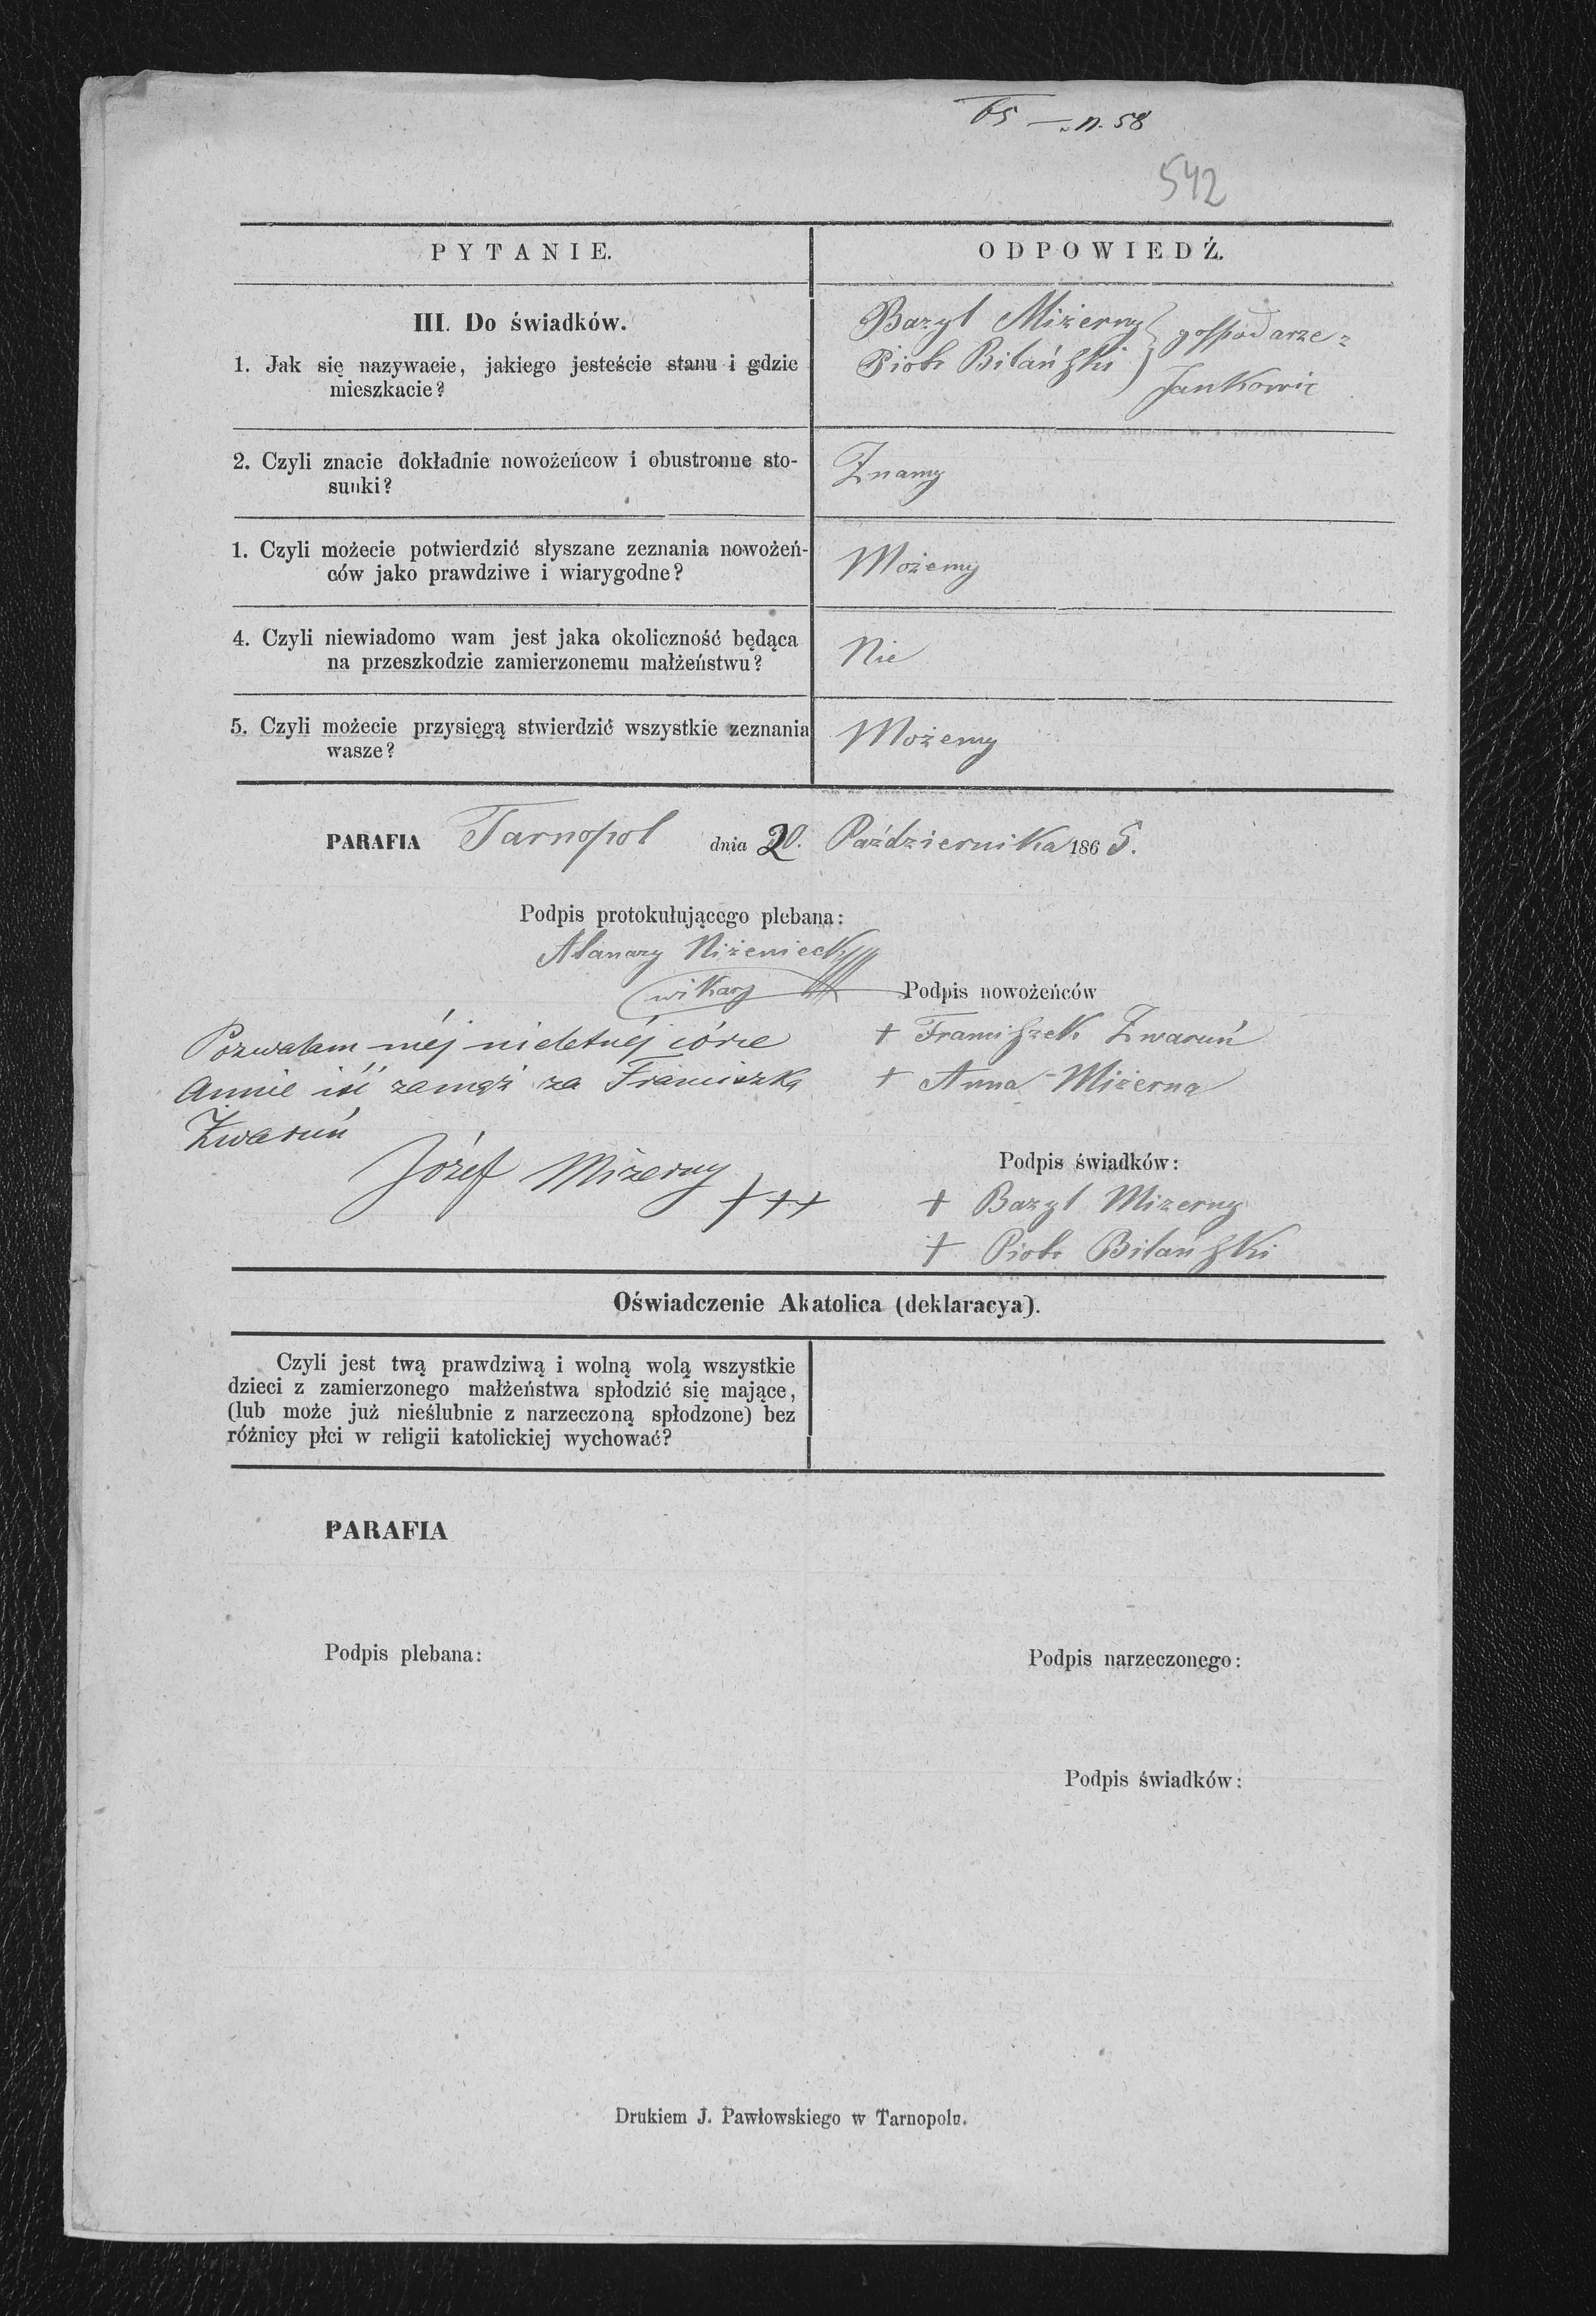 65 — n. 58
542
PYTANIE.
ODPOWIEDŹ.
III. Do świadków.
1. Jak się nazywacie, jakiego jesteście stanu i gdzie
mieszkacie?
Bazyl Mizerny } gospodarze z
Piotr Bilański } Jankowic
2. Czyli znacie dokładnie nowożeńcow i obustronne sto-
sunki?
Znamy
1. Czyli możecie potwierdzić słyszane zeznania nowożeń-
ców jako prawdziwe i wiarygodne?
Możemy
4. Czyli niewiadomo wam jest jaka okoliczność będąca
na przeszkodzie zamierzonemu małżeństwu?
Nie
5. Czyli możecie przysięgą stwierdzić wszystkie zeznania
wasze?
Możemy
PARAFIA Tarnopol dnia 20. Października 1865.
Podpis protokułującego plebana:
wikary
Podpis nowożeńców
Pozwalam méj nieletnéj córce
Annie iść zamąż za Franciszka
Zwaruń
Józef Mizerny
+++
+ Franciszek Zwaruń
+ Anna Mizerna
Podpis świadków:
+ Bazyl Mizerny
+ Piotr Bilański
Oświadczenie Akatolica (deklaracya).
Czyli jest twą prawdziwą i wolną wolą wszystkie
dzieci z zamierzonego małżeństwa spłodzić się mające,
(lub może już nieślubnie z narzeczoną spłodzone) bez
różnicy płci w religii katolickiej wychować?
PARAFIA
Podpis plebana:
Podpis narzeczonego:
Podpis świadków:
Drukiem J. Pawłowskiego w Tarnopolu.